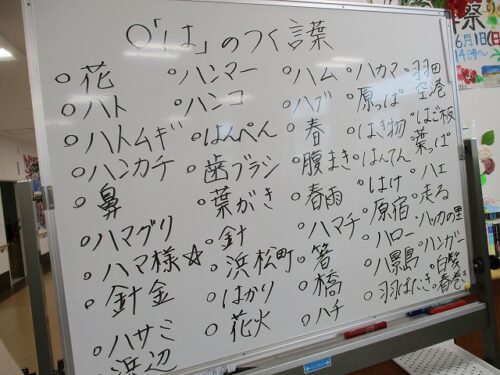 ○「は」のつく言葉
○花
○ハト
○ハトムギ
○ハンカチ
○鼻
○ハマグリ
○ハマ様☆
○針金
○ハサミ
○浜辺
○ハンマー
○ハンコ
○はんぺん
○歯ブラシ
○葉がき
○針
○浜松町
○はかり
○花火
○ハム
○ハブ
○春
○腹まき
○春雨
○ハマチ
○箸
○橋
○ハチ
○ハカマ
○原っぱ
○はき物
○はんてん
○はけ
○原宿
○ハロー
○八景島
○羽はたき
○羽田
空港
○はご板
○葉っぱ
○ハエ
○走る
○ハッカの里
○ハンガー
○白髪
○春巻き
祭
6月1日(日)
14時〜